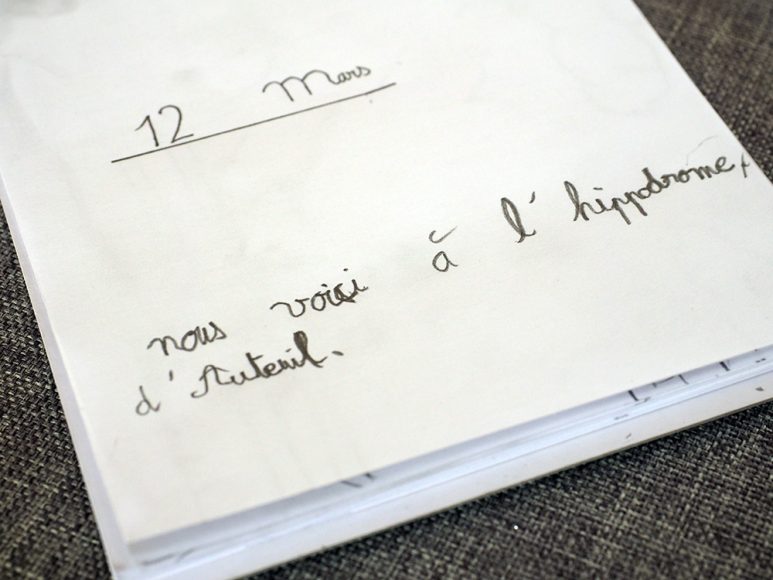 12 Mars
nous voici à l'hippodrome,
d'Auteuil.